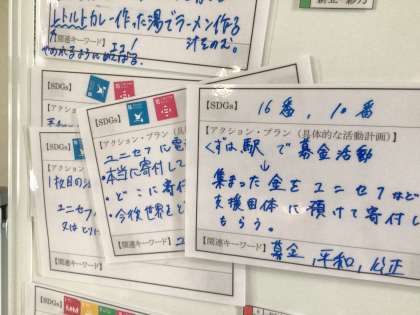 レトルトカレー作った湯でラーメン作る
汁をのむ。
【関連キーワード】
【SDGs】
【アクション・プラン
【SDGs】
【アクション
1枚目の
ユニセフ
【関連キーワード】
【SDGs】
【アクション・プラン（具
ユニセフに電
・本当に寄付して
・どこに寄付
・今後世界を
【関連キーワード】
【SDGs】
16番, 10番
【アクション・プラン（具体的な活動計画）】
くずは駅で募金活動
↓
集まった金をユニセフなど
支援団体に預けて寄付し
もらう。
【関連キーワード】
募金, 平和, 公正
【SDGs】